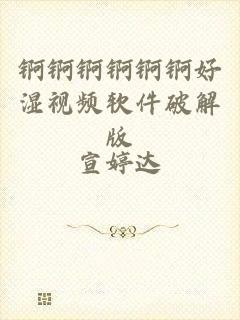 锕锕锕锕锕锕好
湿视频软件破解
版
宣婷达